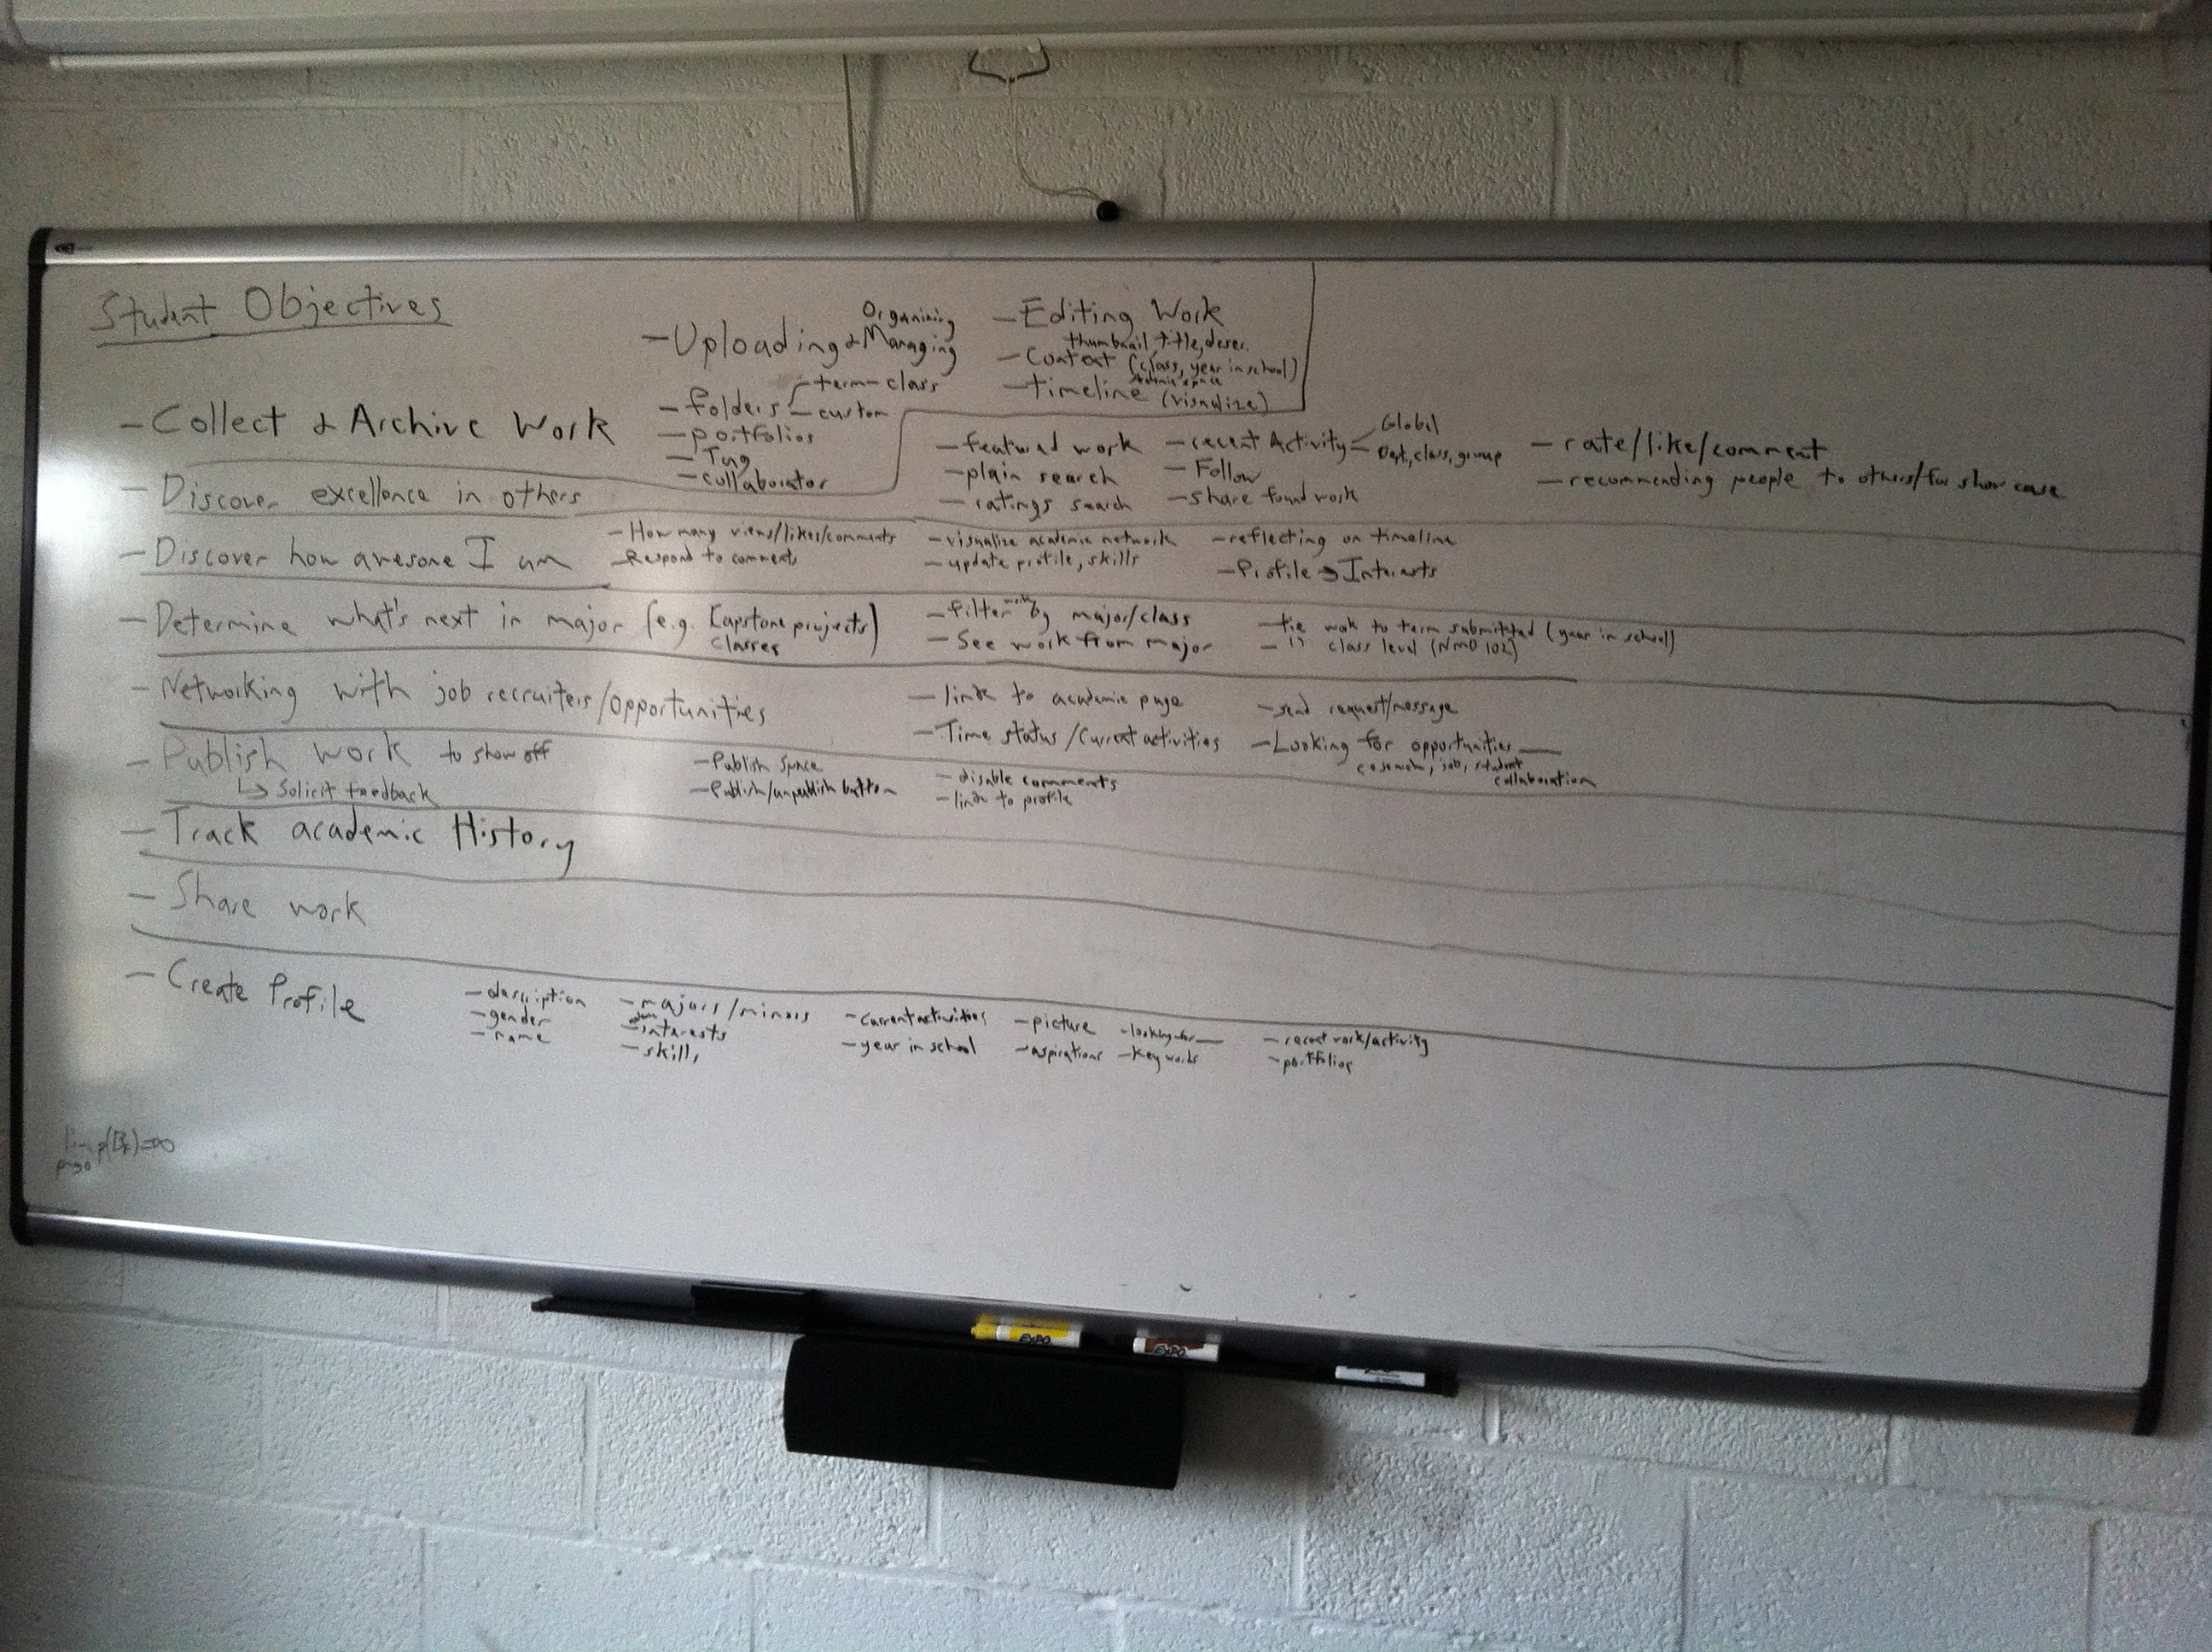 Student Objectives
- Uploading & Organizing Managing
- Editing Work
thumbnail, title, descr.
- Context (class, year in school)
- timeline
(visualize)
- Collect & Archive Work
- folders
term - class
custom
- portfolios
- Tag
- collaborator
- Discover excellence in others
- featured work
- plain search
- ratings search
- recent Activity
Global
Dept, class, group
- Follow
- share found work
- rate/like/comment
- recommending people to others/for show case
- Discover how awesome I am
- How many views/likes/comments
- Respond to comments
- visualize academic network
- update profile, skills
- reflecting on timeline
- Profile → Interests
- Determine what's next in major (e.g. Capstone projects)
classes
- filter work by major/class
- See work from major
- tie work to term submitted (year in school)
- " class level (NMD 102)
- Networking with job recruiters/opportunities
- link to academic page
- Time status/Current activities
- send request/message
- Looking for opportunities
research, job, student
collaboration
- Publish work to show off
↳ Solicit feedback
- Publish Space
- Publish/unpublish button
- disable comments
- link to profile
- Track academic History
- Share work
- Create Profile
- description
- gender
- name
- majors/minors
- interests
- skills
- current activities
- year in school
- picture
- aspirations
- looking for
- key words
- recent work/activity
- portfolios
EXPO
EXPO